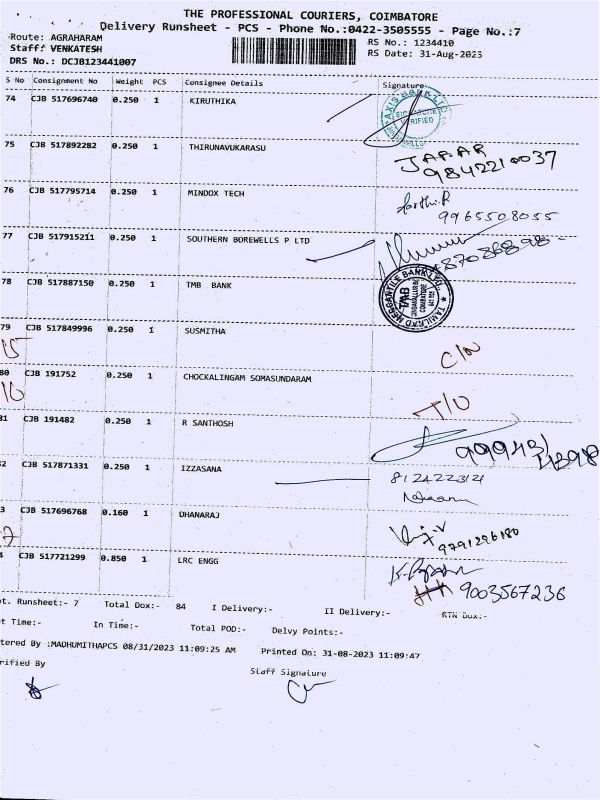 THE PROFESSIONAL COURIERS, COIMBATORE
Delivery Runsheet - PCS - Phone No.:0422-3505555 - Page No.:7
Route: AGRAHARAM RS No.: 1234410
Staff: VENKATESH RS Date: 31-Aug-2023
DRS No.: DCJB123441007
S No Consignment No Weight PCS Consignee Details Signature
74 CJB 517696740 0.250 1 KIRUTHIKA
AXIS BANK LTD
SIGNATURE
VERIFIED
75 CJB 517892282 0.250 1 THIRUNAVUKARASU JAFAR
9842210037
76 CJB 517795714 0.250 1 MINDOX TECH
9965508055
77 CJB 517915211 0.250 1 SOUTHERN BOREWELLS P LTD
78 CJB 517887150 0.250 1 TMB BANK
TAMILNAD MERCANTILE BANK LTD.
TMB
COIMBATORE
79 CJB 517849996 0.250 1 SUSMITHA
15
80 CJB 191752 0.250 1 CHOCKALINGAM SOMASUNDARAM
16 T/O
81 CJB 191482 0.250 1 R SANTHOSH
82 CJB 517871331 0.250 1 IZZASANA 812422314
3 CJB 517696768 0.160 1 DHANARAJ
9791296180
7
4 CJB 517721299 0.850 1 LRC ENGG
9003567236
ot. Runsheet:- 7 Total Dox:- 84 I Delivery:- II Delivery:- RTN Dox:-
t Time:- In Time:- Total POD:- Delvy Points:-
tered By :MADHUMITHAPCS 08/31/2023 11:09:25 AM Printed On: 31-08-2023 11:09:47
rified By Staff Signature